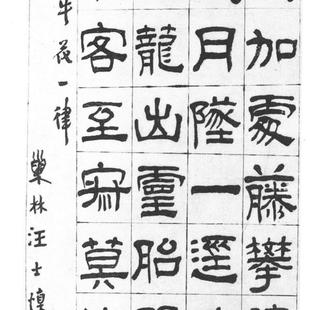 加處藤攀
月墜一逕
龍出靈胎
客至寂莫
牛花一律
巢林汪士慎